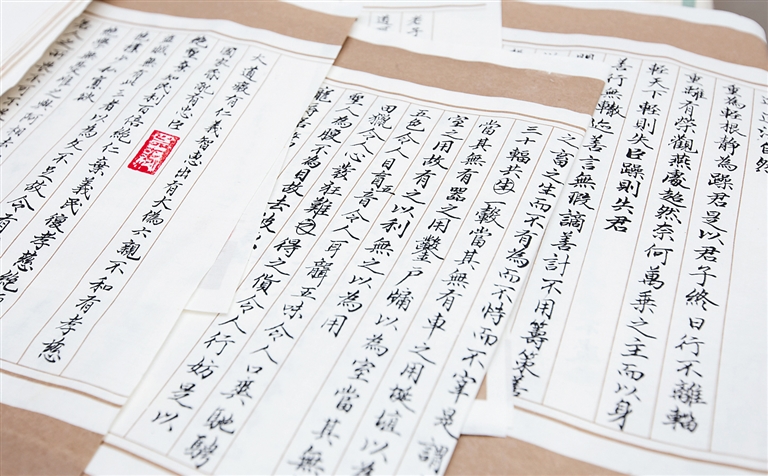 道法自然
重為輕根靜為躁君是以君子終日行不離輜
重雖有榮觀燕處超然奈何萬乘之主而以身
輕天下輕則失臣躁則失君
善行無轍迹善言無瑕讁善計不用籌策善
明
之畜之生而不有為而不恃而不宰是謂
三十輻共一轂當其無有車之用埏埴以為
當其無有器之用鑿戶牖以為室當其無
室之用故有之以利無之以為用
五色令人目盲五音令人耳聾五味令人口爽馳騁
田獵令人心發狂難得之貨令人行妨是以
聖人為腹不為目故去彼
寵辱若驚
大道廢有仁義智惠出有大偽六親不和有孝慈
國家昏亂有忠臣
絕聖棄知民利百倍絕仁棄義民復孝慈絕
盜賊無有此三者以為文不足故令有
抱樸少私寡欲
絕學無憂唯之與阿相去
人之所畏不可不